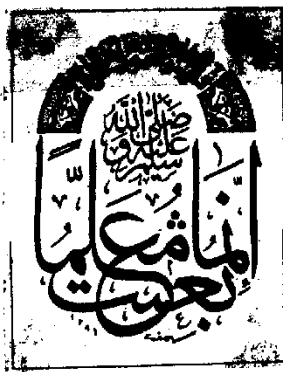 صلى الله
عليه وسلم
إنما بعثت معلما